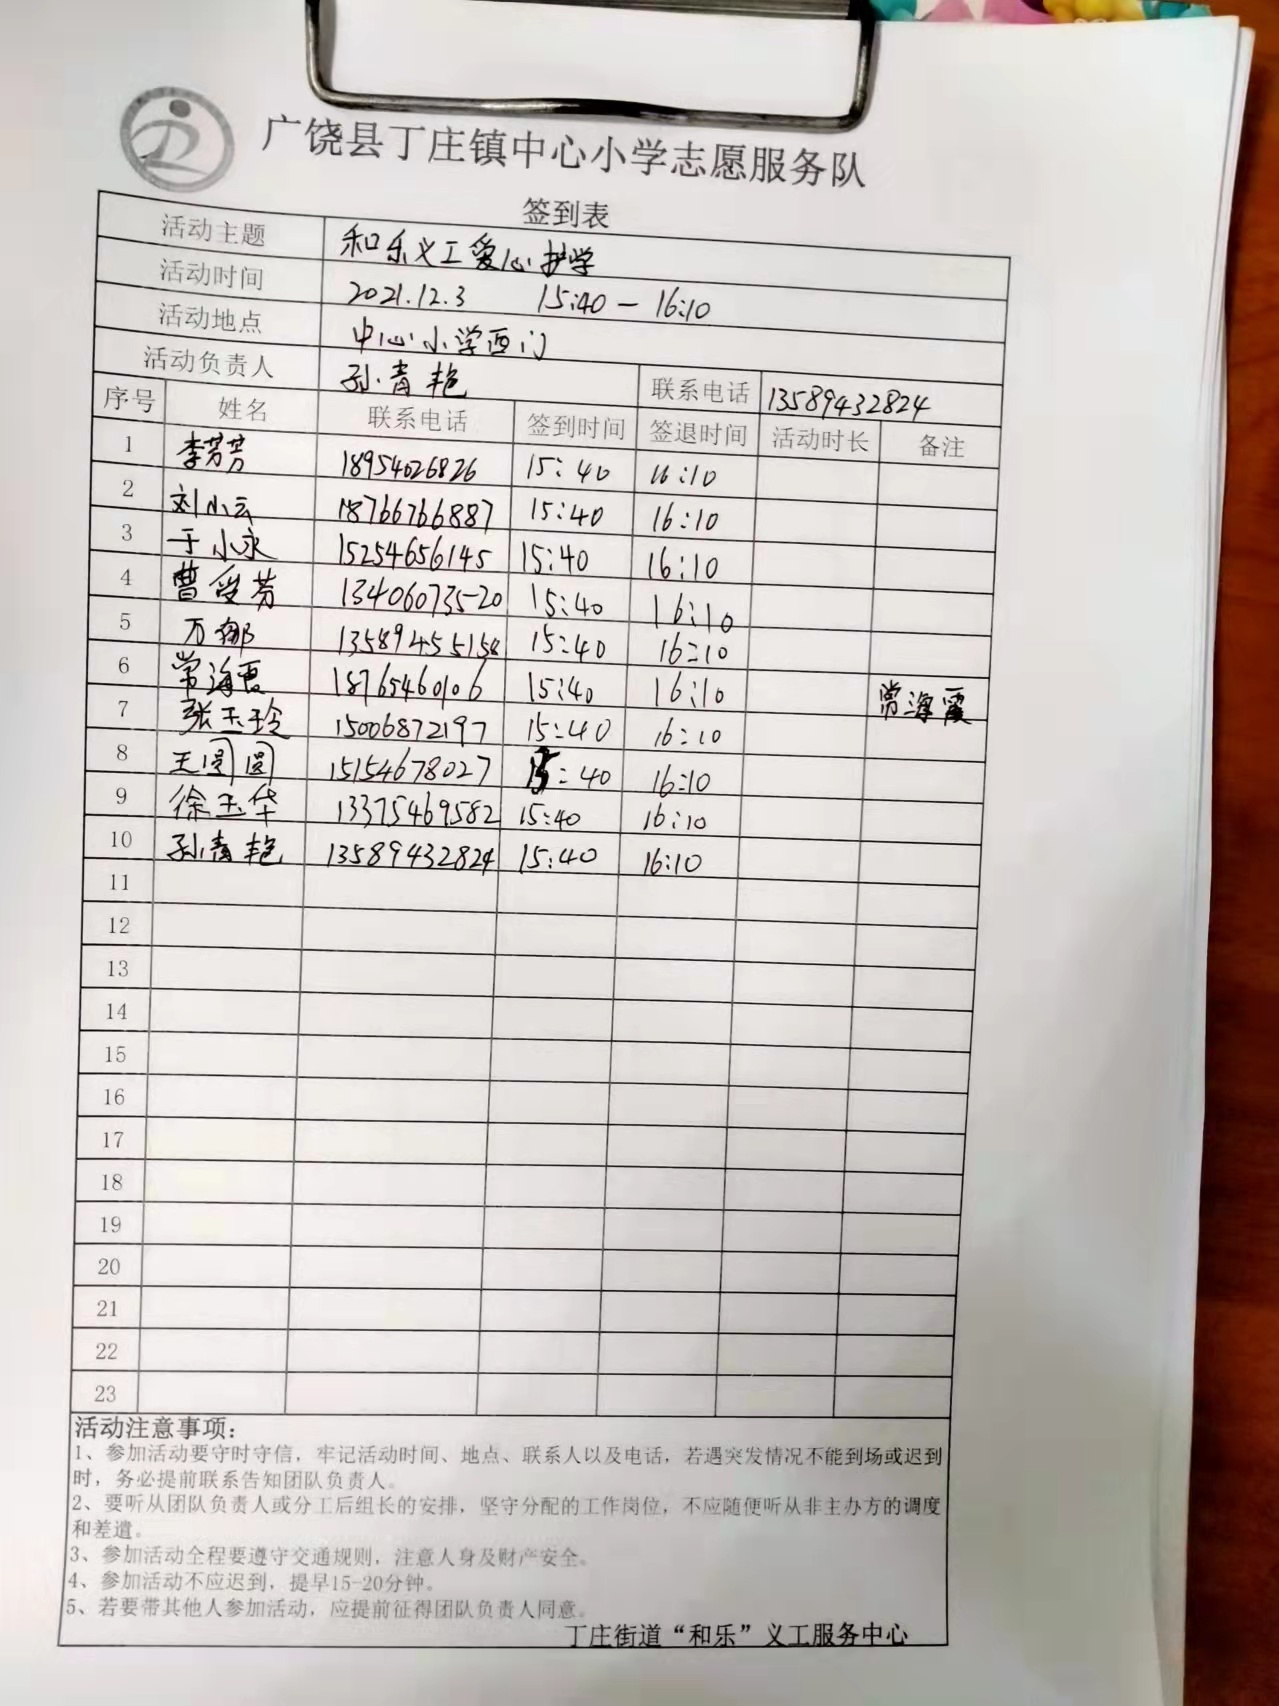 广饶县丁庄镇中心小学志愿服务队
签到表
活动主题 和乐义工爱心护学
活动时间 2021.12.3 15:40-16:10
活动地点 中心小学西门
活动负责人 孙青艳 联系电话 13589432824
序号 姓名 联系电话 签到时间 签退时间 活动时长 备注
1 李芳芳 18954026826 15:40 16:10
2 刘小云 18766766887 15:40 16:10
3 于小永 15254656145 15:40 16:10
4 曹爱芳 13406073520 15:40 16:10
5 万娜 13589455158 15:40 16:10
6 常海霞 18765460106 15:40 16:10 常海霞
7 张玉玲 15006872197 15:40 16:10
8 王圆圆 15154678027 15:40 16:10
9 徐玉华 13375469582 15:40 16:10
10 孙青艳 13589432824 15:40 16:10
11
12
13
14
15
16
17
18
19
20
21
22
23
活动注意事项:
1、参加活动要守时守信，牢记活动时间、地点、联系人以及电话，若遇突发情况不能到场或迟到
时，务必提前联系告知团队负责人。
2、要听从团队负责人或分工后组长的安排，坚守分配的工作岗位，不应随便听从非主办方的调度
和差遣。
3、参加活动全程要遵守交通规则，注意人身及财产安全。
4、参加活动不应迟到，提早15-20分钟。
5、若要带其他人参加活动，应提前征得团队负责人同意。
丁庄街道“和乐”义工服务中心